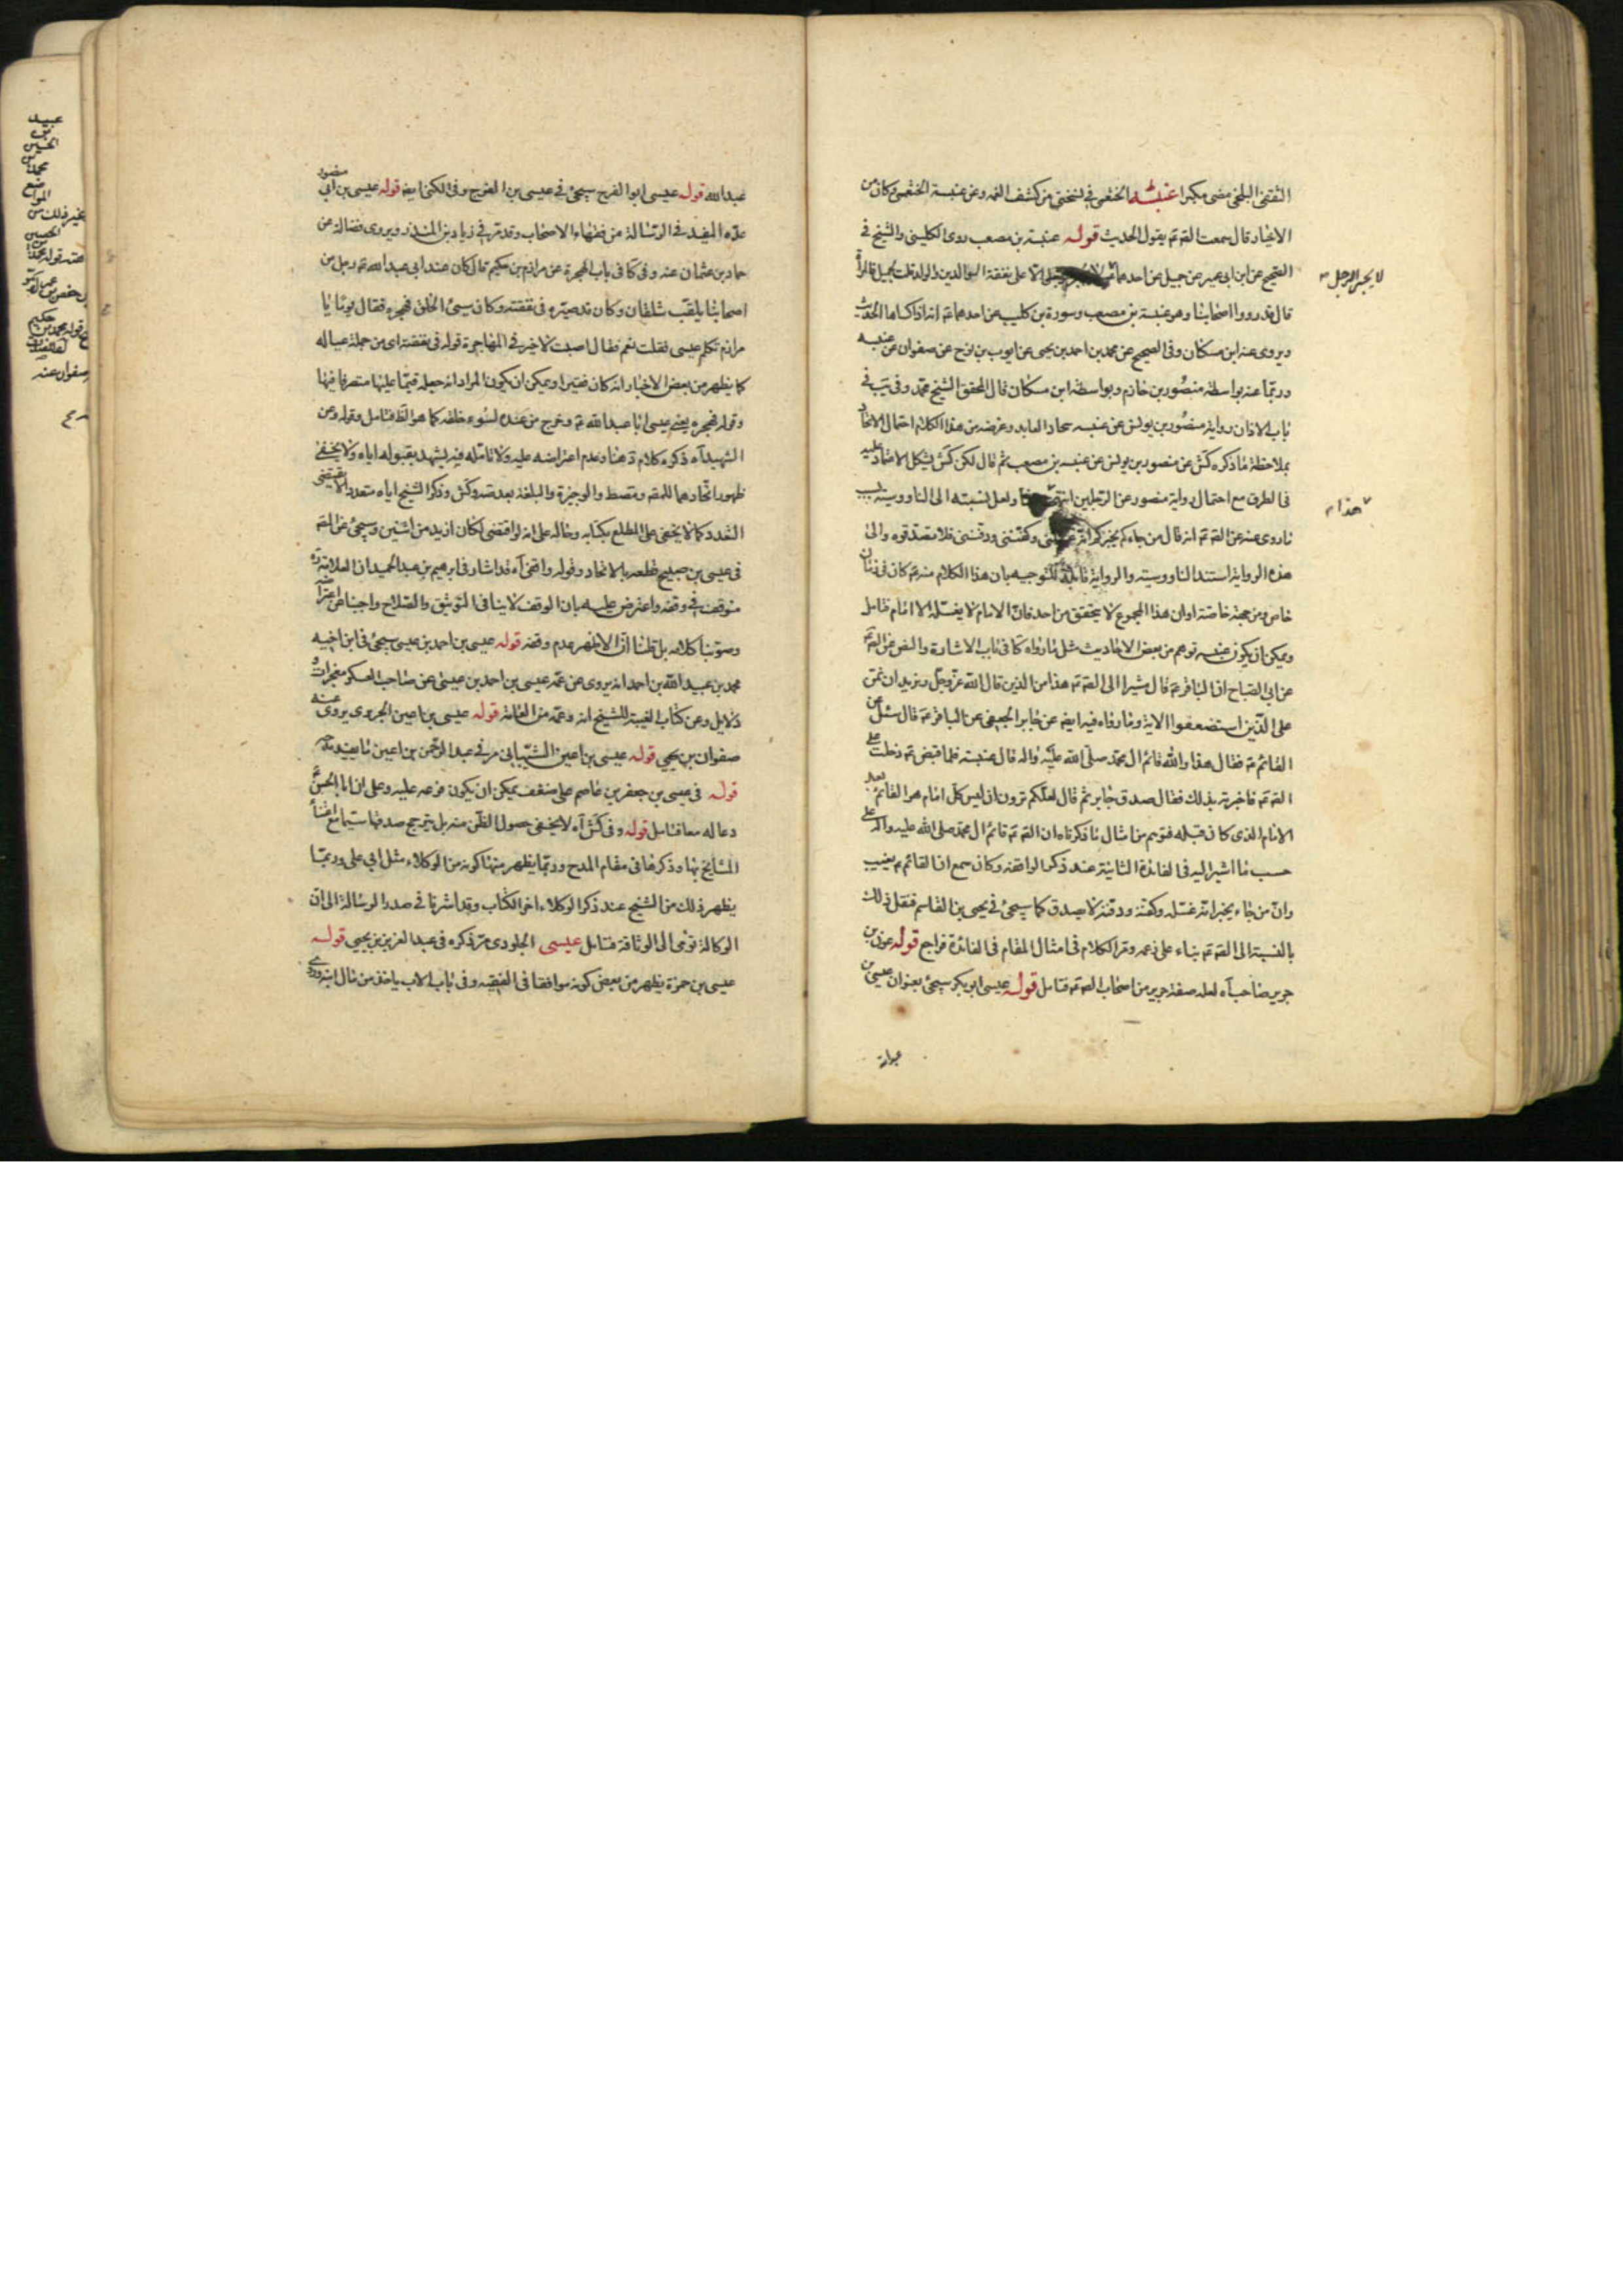 الثقفي البلخي مضى مكبرا عنبسة الخثعمي في نسختي من كشف الغمه وعن عنبسة الخثعمي وكان من
الاخيار قال سمعت الصّ عَ يقول الحديث قوله عنبسة بن مصعب روى الكليني والشيخ في
الصحيح عن ابن ابي عمير عن جميل عن احدهما عَ الا على نفقة الابوالدين والولد قلت لجميل فالمرأة
لا يجبر الرجل
قال قد رووا اصحابنا وهو عنبسة بن مصعب وسورة بن كليب عن احدهما عَ انه اذا كساها الحديث
ويروى عنه ابن مسكان وفي الصحيح عن محمد بن احمد بن يحيى عن ايوب بن نوح عن صفوان عن عنبسه
وربما عنه بواسطة منصور بن حازم وبواسطة ابن مسكان قال المحقق الشيخ محمد وفي يب في
باب الاذان رواية منصور بن يونس عن عنبسه بجاد العابد وغرضه من هذا الكلام احتمال الاتحاد
بملاحظة ما ذكره كش عن منصور بن يونس عن عنبسه بن مصعب ثم قال لكن كش يشكل الاعتماد عليه
في الطرق مع احتمال رواية منصور عن الرجلين انتهى ولعل نسبته الى الناووسية بسبب
هذا
ما روى عنه عن الصّ عَ انه قال من جاءكم يخبركم انه غسلني وكفنني ودفنني فلا تصدقوه والى
هذه الرواية استند الناووسية والرواية قابلة للتوجيه بان هذا الكلام منه عَ كان في زمان
خاص ومن جهة خاصة اوان هذا المجموع لا يتحقق من احد فان الامام لا يغسله الا امام فتامل
ويمكن ان يكون عنبسه توهم من بعض الاحاديث مثل ما رواه كا في باب الاشارة والنص عن الصّ عَ
عن ابي الصباح ان الباقر عَ قال مشيرا الى الصّ عَ هذا من الذين قال الله عزّ وجلّ ونريد ان نمن
على الذين استضعفوا الاية وما رواه فيه ايضا عن جابر الجعفي عن الباقر عَ قال سئل عن
القائم عَ فقال هذا والله قائم ال محمد صلى الله عليه واله قال عنبسة فلما قبض عَ دخلت على
الصّ عَ فاخبرته بذلك فقال صدق جابر ثم قال لعلكم ترون ان ليس كل امام هو القائم بعد
الامام الذي كان قبله فتوهم من امثال ما ذكرناه ان الصّ عَ قائم ال محمد صلى الله عليه واله على
حسب ما اشير اليه في الفائدة الثانية عند ذكر الواقفة وكان سمع ان القائم عَ يغيب
وان من جاء يخبر انه غسله وكفنه ودفنه لا يصدق كما سيجئ في يحيى بن القاسم فنقل ذلك
بالنسبة الى الصّ عَ بناء على زعمه ومر الكلام في امثال المقام في الفائدة فراجع قوله عون بن
جرير صاحب آه لعله صفة جرير من اصحاب الصّ عَ فتامل قوله عيسى ابو بكر سيجئ بعنوان عيسى بن
عبدالله
عبدالله قوله عيسى ابو الفرج سيجئ في عيسى بن الفرج وفي الكنى ايضا قوله عيسى بن ابي منصور
عدّه المفيد في الرسالة من فقهاء الاصحاب وقد مر في زياد بن المنذر ويروى فضالة عن
حماد بن عثمان عنه وفي كا في باب الهجرة عن مرازم بن حكيم قال كان عند ابي عبد الله عَ رجل من
اصحابنا يلقب شلقان وكان قد صيّره في نفقته وكان سيئ الخلق فهجره فقال يوما يا
مرازم تكلم عيسى فقلت نعم فقال اصبت لا خير في المهاجرة قوله في نفقته اي من جملة عياله
كما يظهر من بعض الاخبار انه كان فقيرا ويمكن ان يكون المراد انه جعله قيما عليها متصرفا فيها
وقوله فهجره يعني عيسى ابا عبد الله عَ وخرج من عنده لسوء خلقه كما هو الظ فتامل وقوله وعن
الشهيد آه ذكره كلام د هنا وعدم اعتراضه عليه ولا تامله فيه يشهد بقبوله اياه ولا يخفى
ظهور اتحادهما للمقم ومتصط والوجيزة والبلغة بعد تصد وكش وذكر الشيخ اياه متعددا لا يقتضي
التعدد كما لا يخفى على المطلع بكتابه وحاله على انه لو اقتضى لكان ازيد من اثنين وسيجئ عن الصّ عَ
في عيسى بن صبيح قطعه بالاتحاد وقوله واقفى آه قد اشار في ابرهيم بن عبد الحميد ان العلامة ره
متوقف في وقفه واعترض عليه بان الوقف لا ينافي التوثيق والصلاح واجبنا عن اعتراضه
وصوّبنا كلامه بل قلنا انّ الاظهر عدم وقفه قوله عيسى بن احمد بن عيسى سيجئ في ابن اخيه
محمد بن عبيد الله بن احمد انه يروى عن عمّه عيسى بن احمد بن عيسى عن صاحب العسكر معجزات و
دلايل وعن كتاب الغيبة للشيخ انه وعمه من العامة قوله عيسى بن اعين الجريرى يروى عنه
صفوان بن يحيى قوله عيسى بن اعين الشيباني مر في عبد الرحمن بن اعين ما يفيد مدحه
قوله في عيسى بن جعفر بن عاصم على ضعف يمكن ان يكون فرعه عليه وعلى ان ابا الحسن عَ
دعا له معا فتامل قوله وفي كش آه لا يخفى حصول الظن منه بل يترجح صدقها سيما مع اعتناء
المشايخ بها وذكرها في مقام المدح وربما يظهر منها كونه من الوكلاء مثل ابي علي وربما
يظهر ذلك من الشيخ عند ذكر الوكلاء اخر الكتاب وقد اشرنا في صدر الرسالة الى ان
الوكالة تومى الى الوثاقة فتامل عيسى الجلودى مر ذكره في عبد العزيز بن يحيى قوله
عيسى بن حمزة يظهر من بعض كونه موافقا في الفقيه وفي باب الاب ياخذ من مال ابنه
عبيد
بن
الحسين
محمد
المواضع
بغير ذلك من
الحسين
حكيم
صفوان عنه